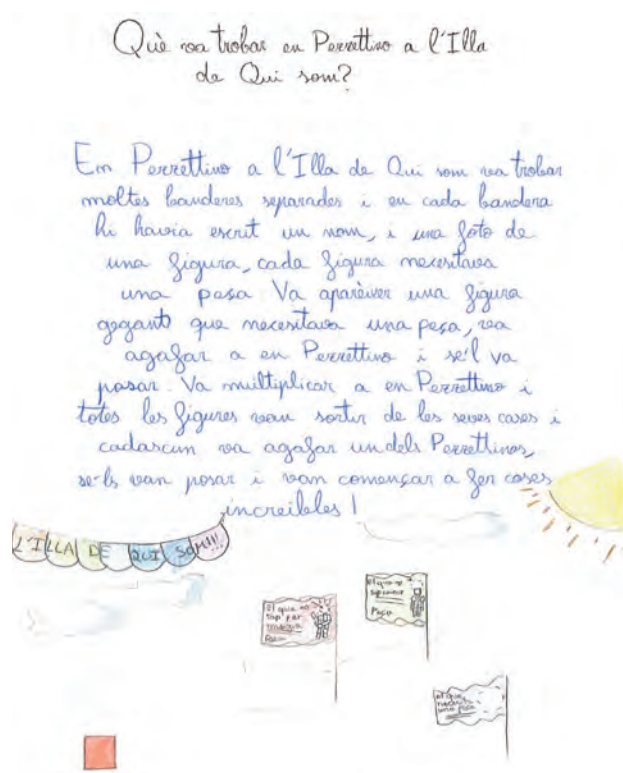 Què va trobar en Pezzettino a l'Illa
de Qui som?
En Pezzettino a l'Illa de Qui som va trobar
moltes banderes separades i en cada bandera
hi havia escrit un nom, i una foto de
una figura, cada figura necesitava
una pesa Va aparèixer una figura
gegant que necesitava una peça, va
agafar a en Pezzettino i se'l va
posar. Va multiplicar a en Pezzettino i
totes les figures van sortir de les seves cases i
cadascun va agafar un dels Pezzettinos,
se-ls van posar i van començar a fer coses
increibles!
L'ILLA DE QUI SOM!!!
el que no
sap fer
Peça
el que no
Peça
el que
necesita
una peça